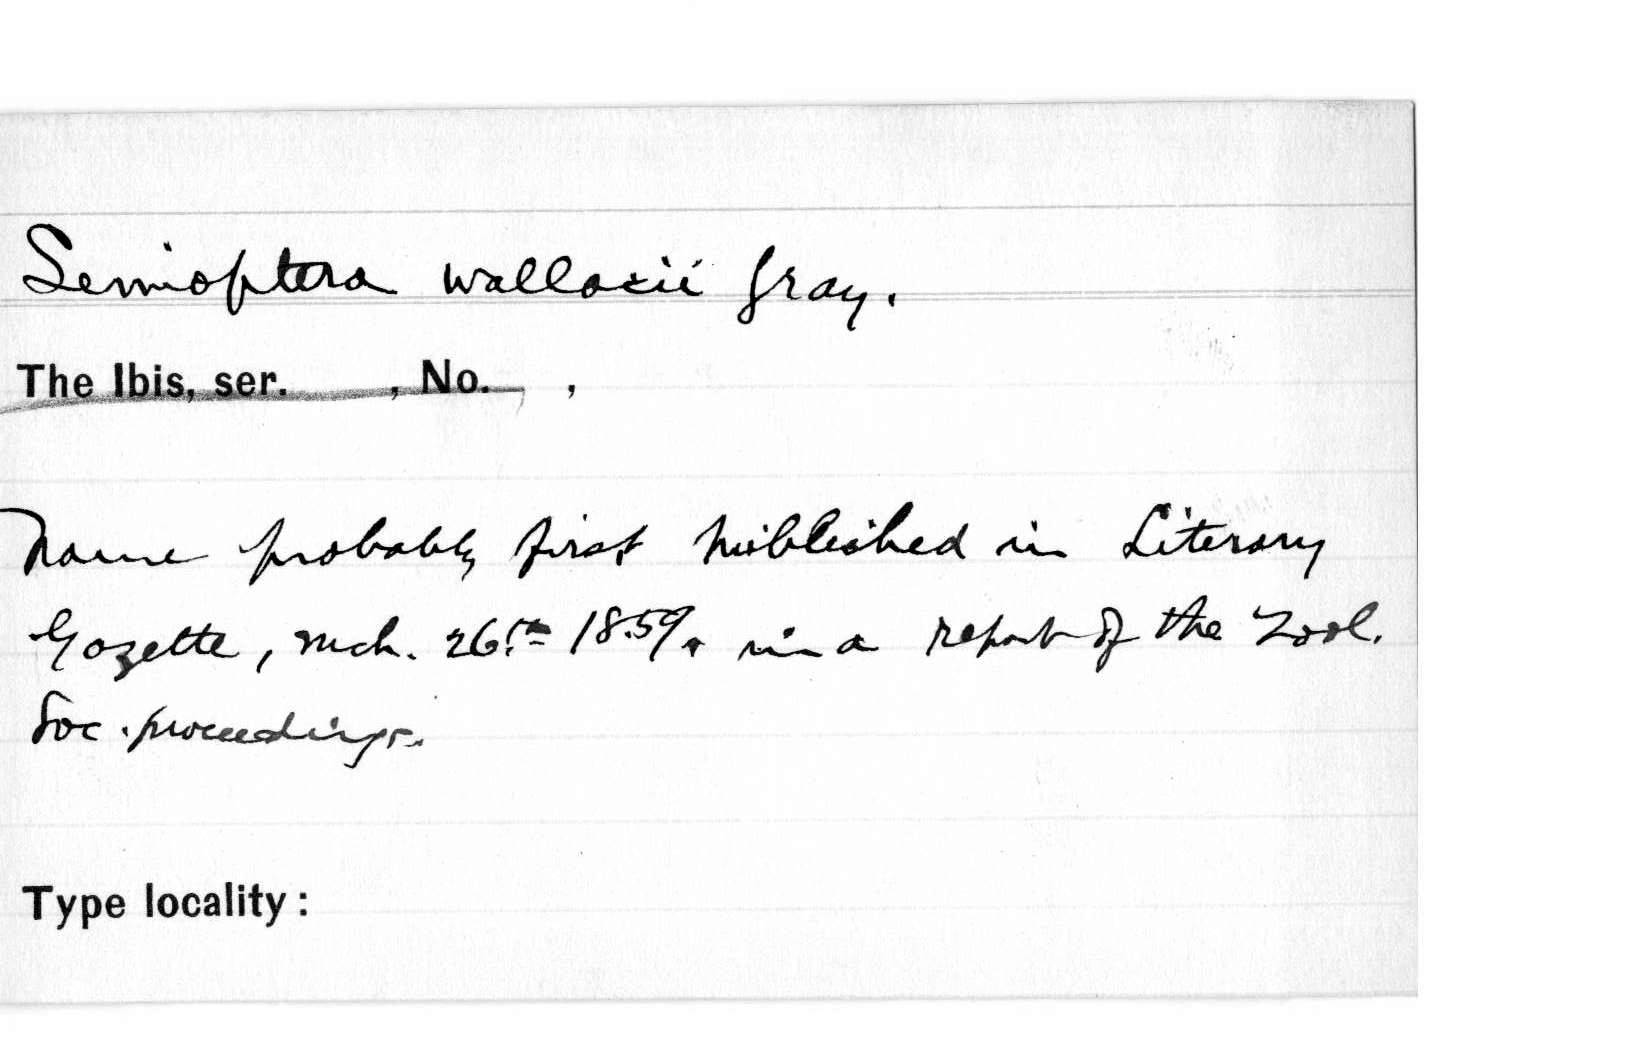 Semioptera wallacii Gray.
The Ibis, ser. , No. ,
Name probably first published in Literary
Gazette, Mch. 26th 1859. in a report of the Zool.
Soc. proceedings.
Type locality: